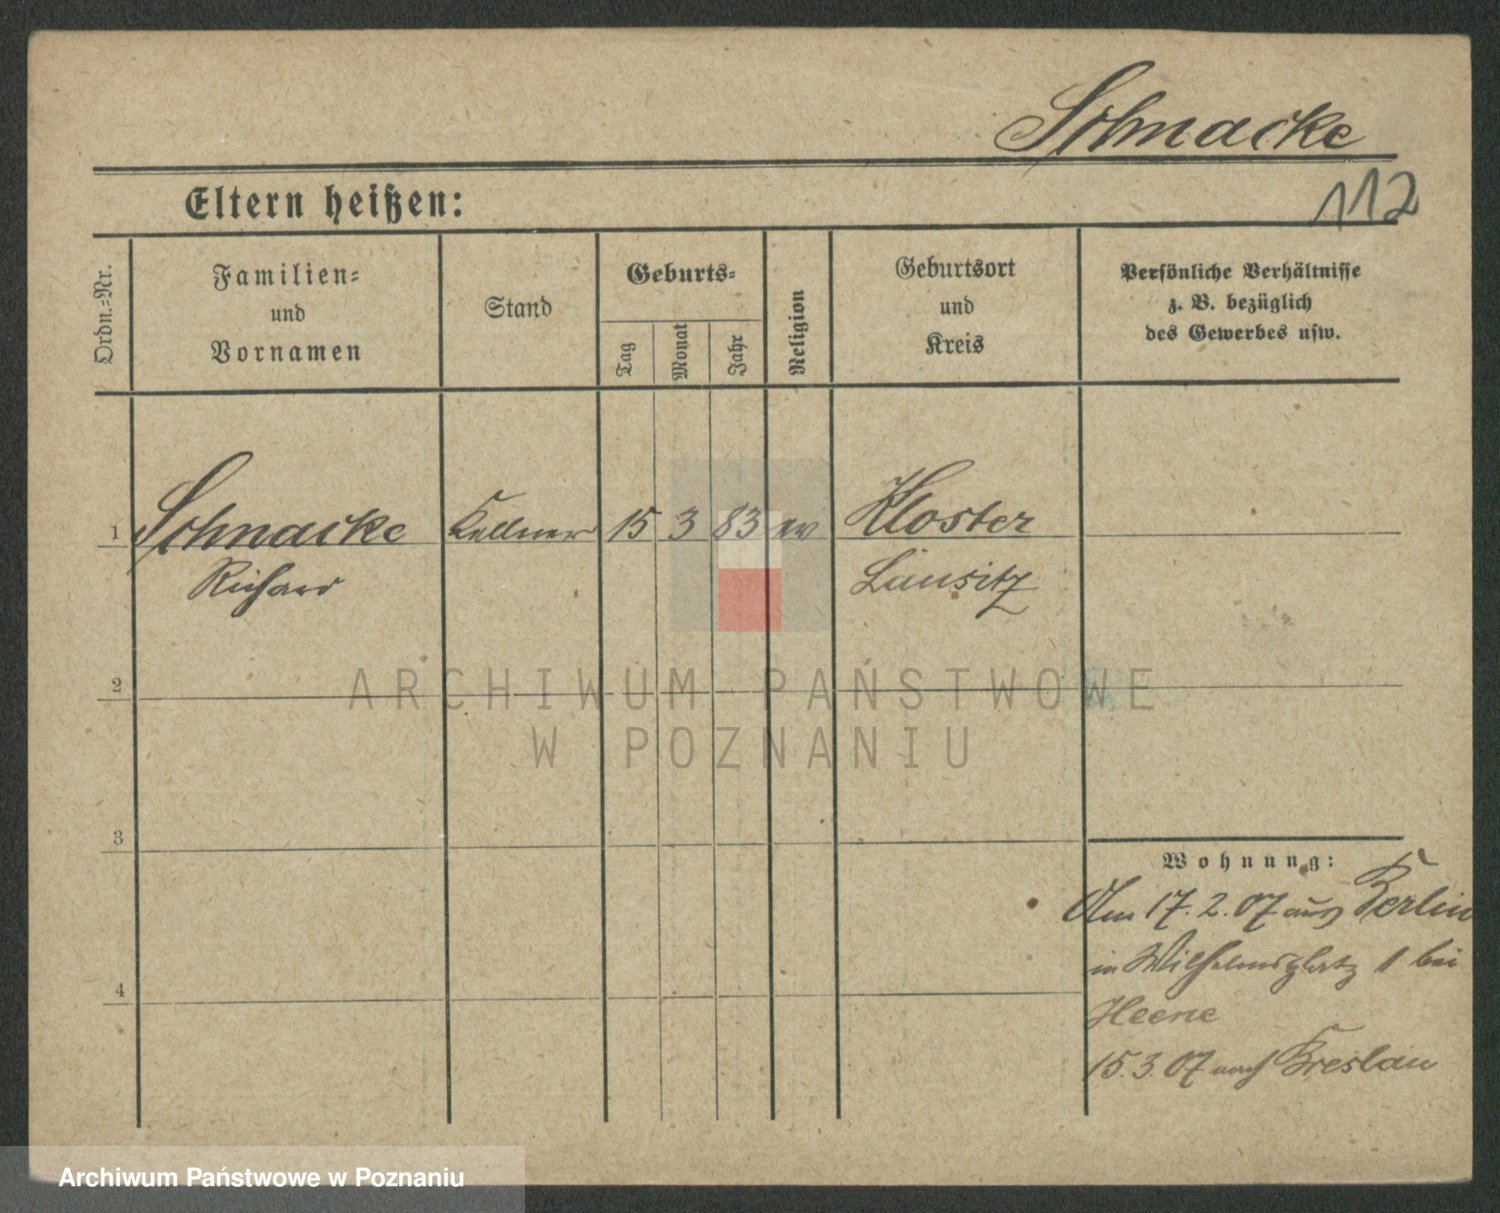 Schnacke
Eltern heißen:
112
Ordn.-Nr.
Familien-
und
Vornamen
Stand
Geburts-
Tag
Monat
Jahr
Religion
Geburtsort
und
Kreis
Persönliche Verhältnisse
z. B. bezüglich
des Gewerbes usw.
1 Schnacke Kellner 15 3 83 ev Kloster
Richard Lausitz
2
ARCHIWUM PAŃSTWOWE
W POZNANIU
3
Wohnung:
Am 17. 2. 07 aus Berlin
in Wilhelmsplatz 1 bei
Heene
4
15. 3. 07 nach Breslau
Archiwum Państwowe w Poznaniu